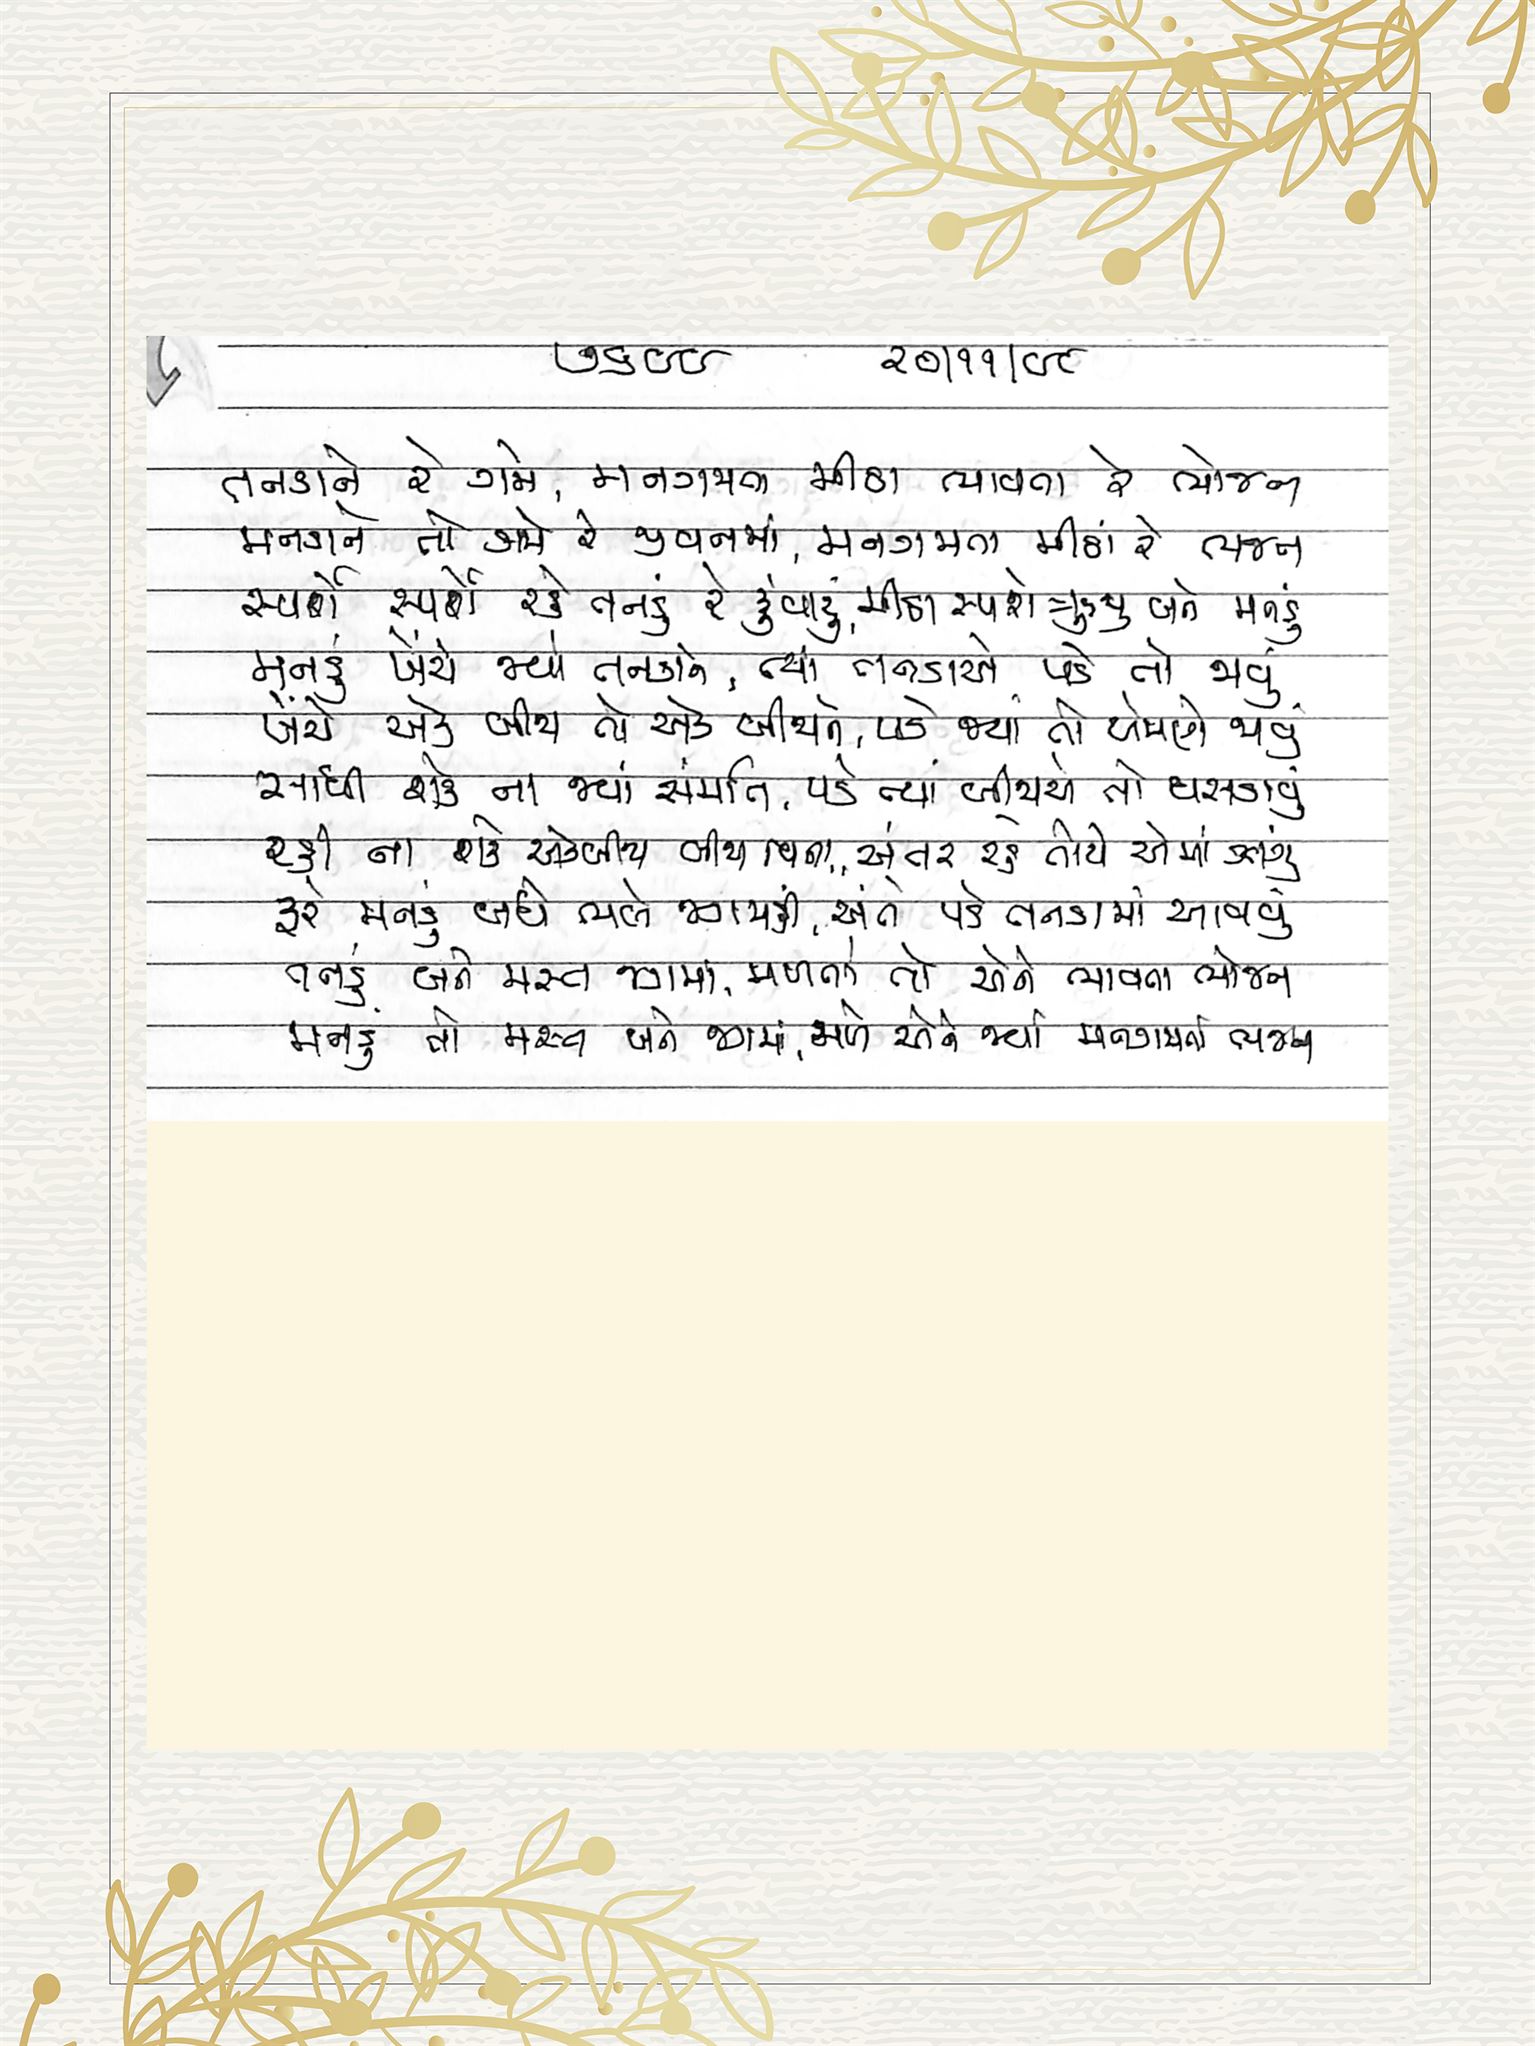 ૭૬૯૯ ૨૭/૧૧/૯૮
તનડાને રે ગમે, મનગમતા મીઠા ભાવતા રે ભોજન
મનડાને તો ગમે રે જીવનમાં, મનગમતા મીઠાં રે ભજન
સ્પર્શે સ્પર્શે રહે તનડું રે રૂંવાડું, મીઠા સ્પર્શે બને મનડું
મનડું ખેંચે જ્યાં તનડાને, ત્યાં તનડાએ પડે તો જવું
ખેંચે એક બીજા તો એક બીજાને, પડે જ્યાં તો બંનેએ જવું
સાધી શકે ના જ્યાં સંમતિ, પડે ત્યાં બીજાએ તો ઘસડાવું
રહી ના શકે એકબીજા બીજા વિના, અંતર રહે તોયે એમાં
ફરે મનડું બધે ભલે જગમહીં, અંતે પડે તનડામાં આવવું
તનડું બને મસ્ત જગમાં, મળતાં તો એને ભાવતા ભોજન
મનડું તો મસ્ત બને જગમાં, મળે એને જ્યાં મનગમતાં ભજન